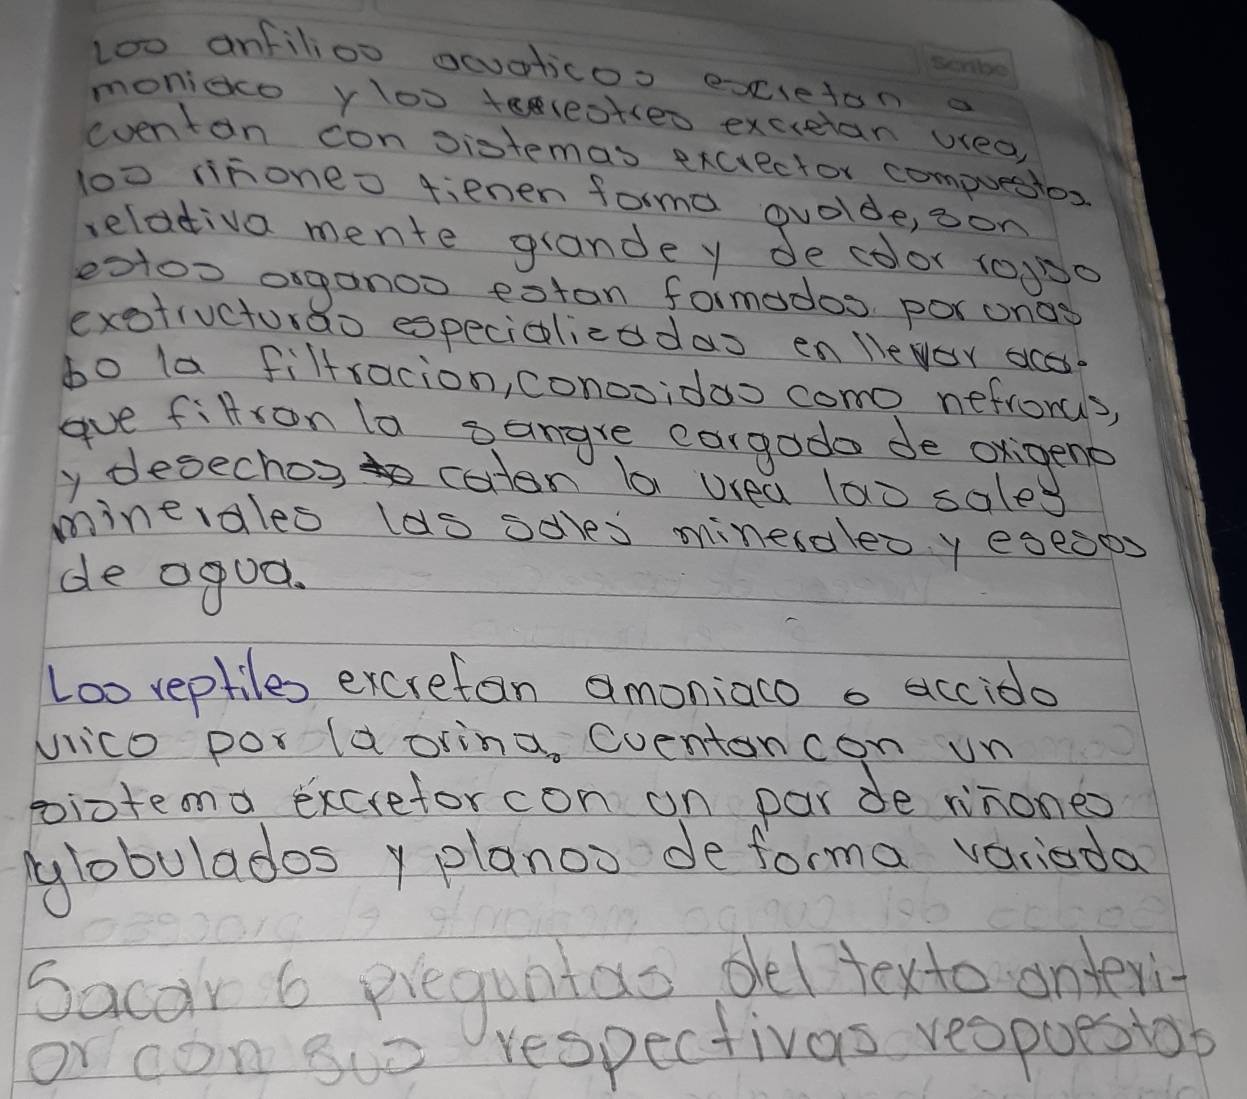 Los anfilios acuaticos excretan a
moniaco y los terrestres excretan urea,
cuentan con sistemas excrector compuestos
los riñones tienen forma ovalde, son
relativa mente grande y de color rojiso
estos organos estan formados por unas
exstructuras especializadas en llevar aca-
bo la filtracion, conosidas como nefronas,
que filtron la sangre cargada de oxigeno
y desechos, catan la urea las sales
minerales las sales minerales y esesos
de agua.
Los reptiles excretan amoniaco o accido
urico por la orina. Cuentan con un
sistema excretor con un par de riñones
globulados y planos de forma variada
Sacar 6 preguntas del texto anteri-
or con sus respectivas respuestas
Scribe